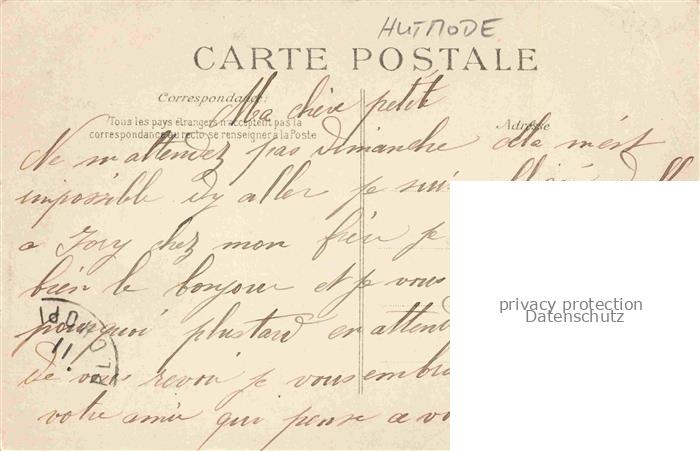 HUTMODE
CARTE POSTALE
Correspondance:
Ma chère petite
Tous les pays étrangers n'acceptent pas la
correspondance au recto se renseigner à la Poste
Adresse
Ne m'attendez pas dimanche cela m'est
impossible d'y aller je suis
a Ivry chez mon frère je
bien le bonjour et je vous
pourquoi plustard en attend
de vous revoir je vous embra
votre amie qui pense a vo
privacy protection
Datenschutz